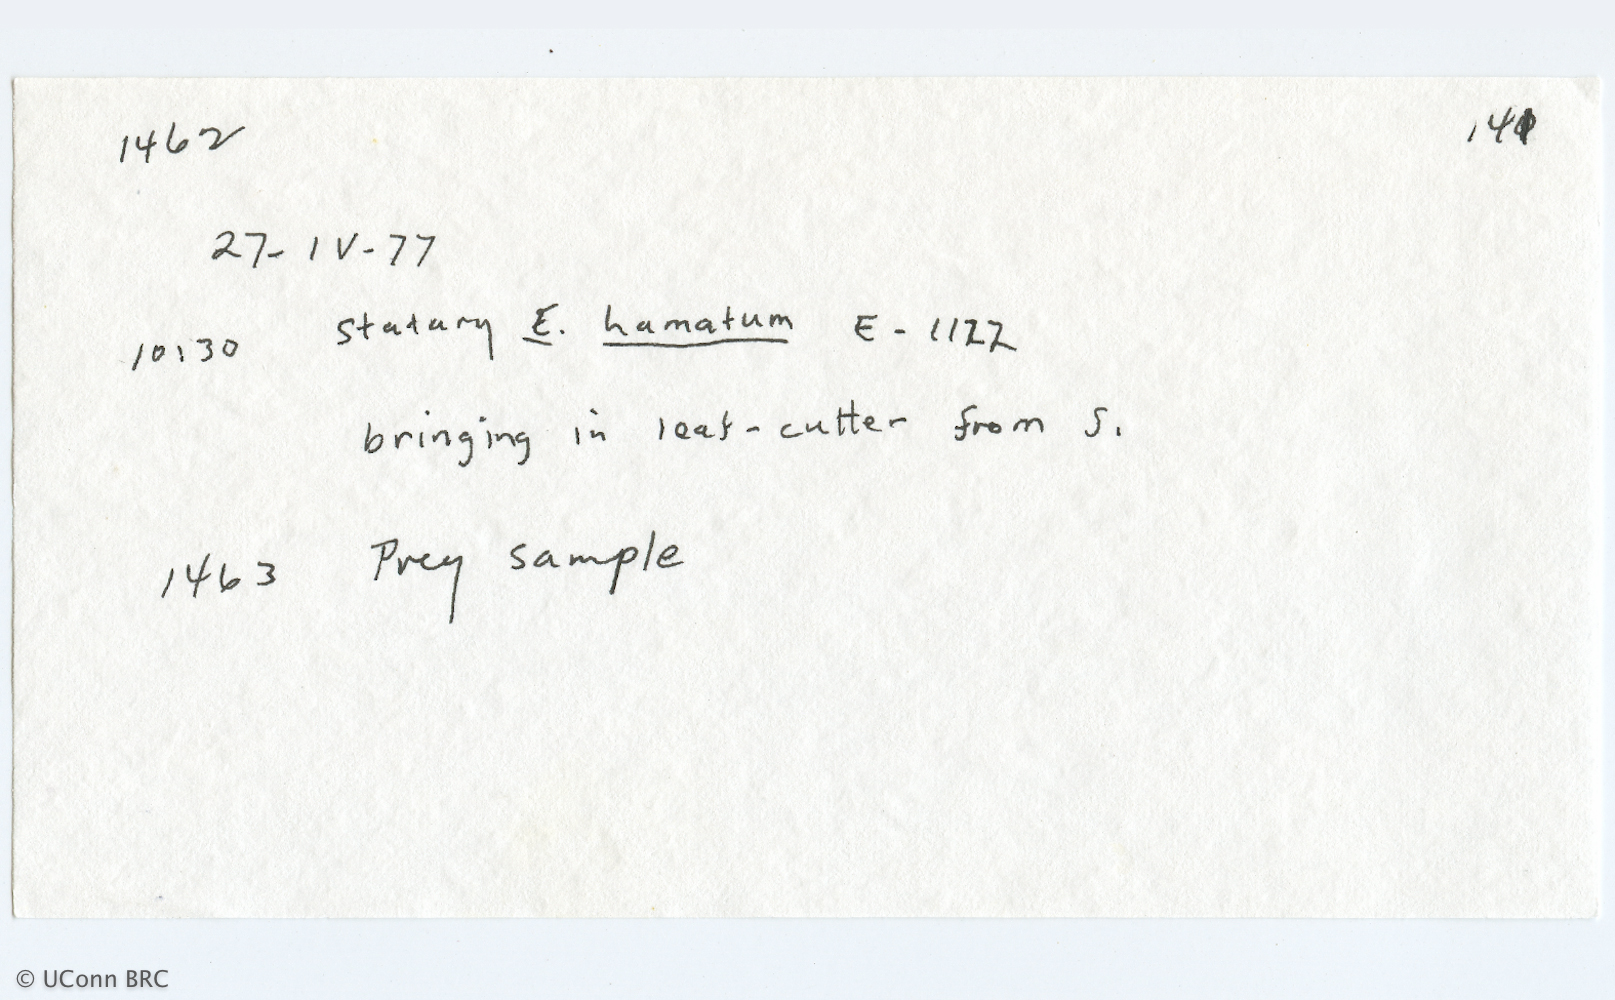 1462
141
27-IV-77
10:30 statary E. hamatum E-1122
bringing in leaf-cutter from S.
1463 Prey sample
© UConn BRC